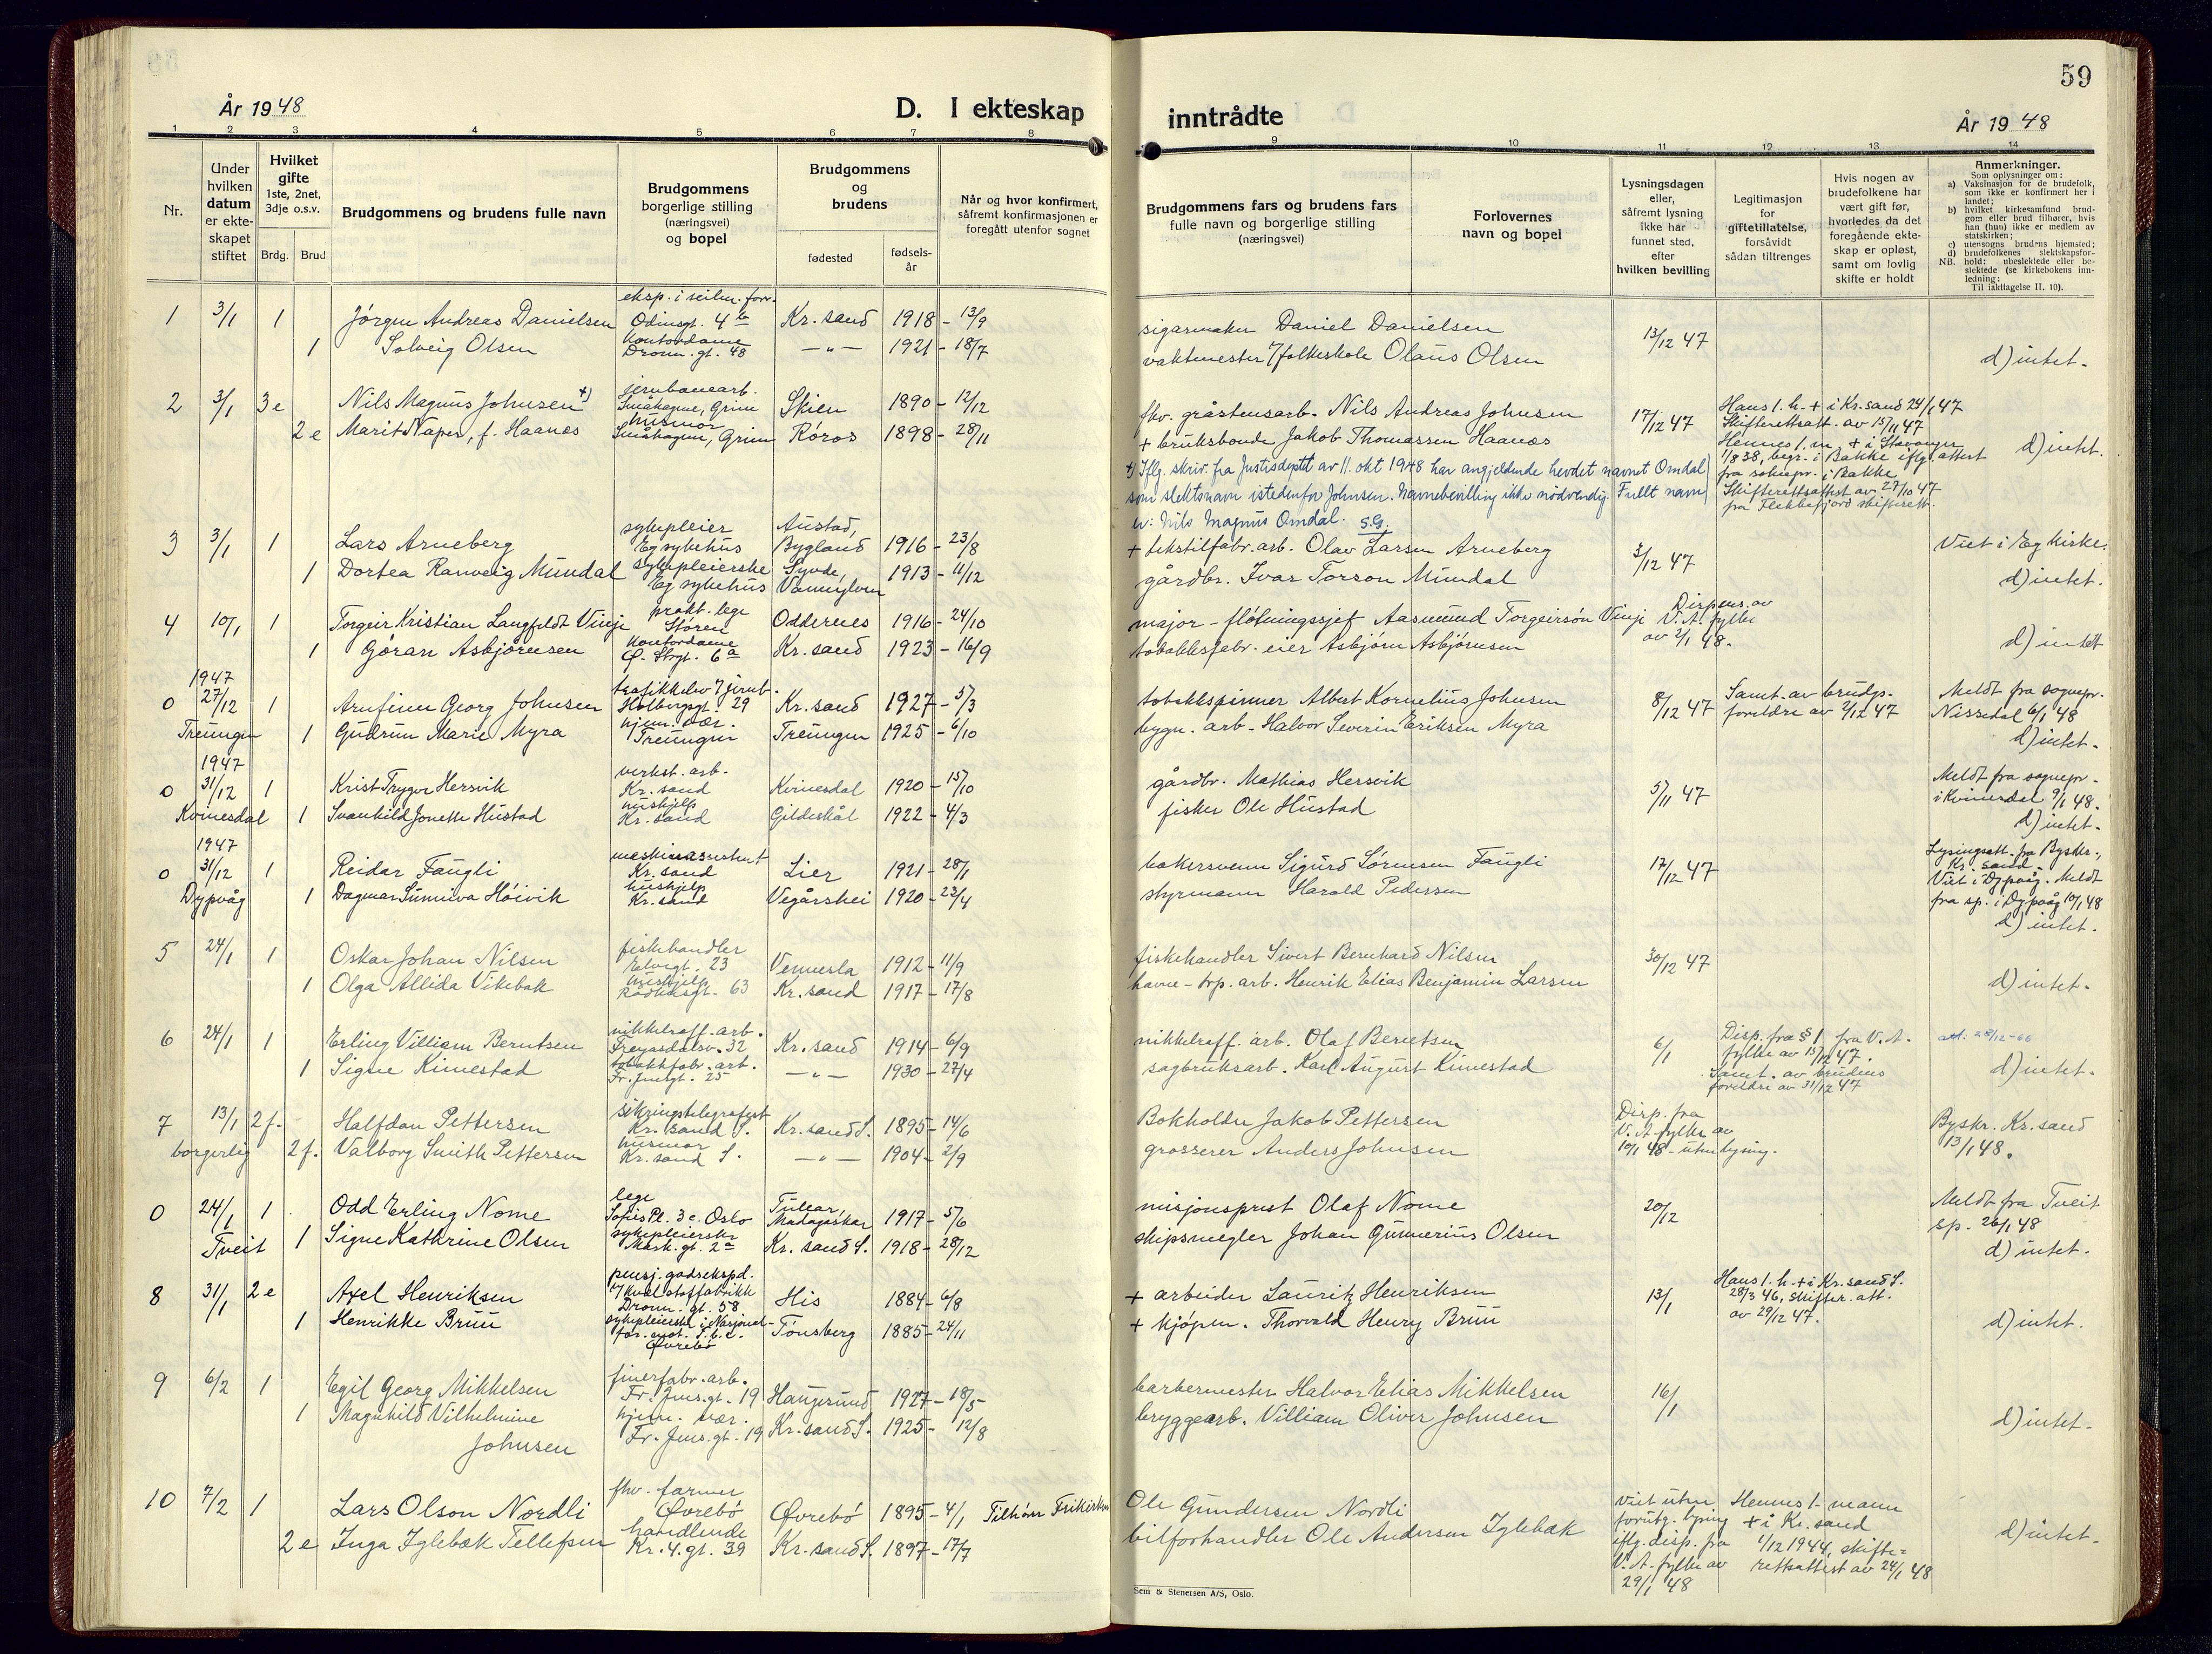 59
År 1948
D. I ekteskap inntrådte
År 1948
1 2 3 4 5 6 7 8 9 10 11 12 13 14
Nr.
Under hvilken datum er ekteskapet stiftet
Hvilket gifte 1ste, 2net, 3dje o.s.v.
Brdg. Brud
Brudgommens og brudens fulle navn
Brudgommens borgerlige stilling (næringsvei) og bopel
Brudgommens og brudens
fødested
fødselsår
Når og hvor konfirmert, såfremt konfirmasjonen er foregått utenfor sognet
Brudgommens fars og brudens fars fulle navn og borgerlige stilling (næringsvei)
Forlovernes navn og bopel
Lysningsdagen eller, såfremt lysning ikke har funnet sted, efter hvilken bevilling
Legitimasjon for giftetillatelse, forsåvidt sådan tiltrenges
Hvis nogen av brudefolkene har vært gift før, hvorledes da det foregående ekteskap er opløst, samt om lovlig skifte er holdt
Anmerkninger.
Som oplysninger om:
a) Vaksinasjon for de brudefolk, som ikke er konfirmert her i landet;
b) hvilket kirkesamfund brudgom eller brud tilhører, hvis han (hun) ikke er medlem av statskirken;
c) utensogns brudens hjemsted;
d) brudefolkenes slektskapsforhold: ubeslektede eller beslektede (se kirkebokens innledning:
NB.
Til iakttagelse II. 10).
1 3/1 1 Jörgen Andreas Danielsen eksp. i seilm. forr. Odinsgt. 4b Kr.sand 1918 - 13/9 sigarmaker Daniel Danielsen 13/12 47
1 Solveig Olsen kontordame Dronn. gt. 48 -"- 1921 - 18/7 vaktmester v/folkeskole Olaus Olsen d) intet.
2 3/1 3e Nils Magnus Johnsen +) jernbanearb. Småhagene, Grim Skien 1890 - 12/12 fhv. gråstensarb. Nils Andreas Johnsen 17/12 47 Hans 1. h. + i Kr.sand 24/1 47 Skifterettsatt. av 15/11 47
2e Marit Naper, f. Haanes husmor Småhagen, Grim Röros 1898 - 28/11 + bruksbonde Jakob Thomassen Haanes Hennes 1. m. + i Stavanger 1/8 38, begr. i Bakke iflg. attest fra sokнepr. i Bakke. Skifterettsattest av 27/10 47 fra Flekkefjord skifterett. d) intet.
+) Iflg. skriv. fra Justisdeptet av 11. okt 1948 har angjeldende hevdet navnet Omdal
som slektsnavn istedenfor Johnsen. Navnebevilling ikke nödvendig. Fullt navn
er: Nils Magnus Omdal. S.G.
3 3/1 1 Lars Arneberg sykepleier Eg sykehus Austad, Bygland 1916 - 23/8 + tekstilfabr. arb. Olav Larsen Arneberg 3/12 47 Viet i Eg Kirke.
1 Dortea Ranveig Mundal sykepleierske Eg sykehus Syvde, Vannylven 1913 - 11/12 gårdbr. Ivar Torson Mundal d) intet.
4 10/1 1 Torgeir Kristian Langfeldt Vinje prakt. lege Stören Oddernes 1916 - 24/10 major - flötningssjef Aasmund Torgeirsön Vinje Dispens. av V.A. fylke av 2/1 48.
1 Göran Asbjörnsen kontordame Ö. Strgt. 6a Kr.sand 1923 - 16/9 tobakksfabr. eier Asbjörn Asbjörnsen d) intet
1947
0 27/12 1 Arnfinn Georg Johnsen trafikkelev v/ jernb. Holbergsgt. 29 Kr.sand 1927 - 5/3 tobakkspinner Albert Kornelius Johnsen 8/12 47 Samt. av brudg. foreldre av 2/12 47 Meldt fra sognepr. Nissedal 6/1 48
Treungen 1 Gudrun Marie Myra hjem. vær. Treungen Treungen 1925 - 6/10 bygn. arb. Halvor Severin Eriksen Myra d) intet.
1947
0 31/12 1 Krist Trygve Hersvik verkst. arb. Kr.sand Kvinesdal 1920 - 15/10 gårdbr. Mathias Hersvik 5/11 47 Meldt fra sognepr. i Kvinesdal 9/1 48.
Kvinesdal 1 Svanhild Jonette Hustad hushjelp Kr.sand Gildeskål 1922 - 4/3 fisker Ole Hustad d) intet.
1947
0 31/12 1 Reidar Faugli maskinassistent Kr.sand Lier 1921 - 28/1 bakersvenn Sigurd Sörensen Faugli 17/12 47 Lysingsatt. fra Byskr., Kr.sand. Viet i Dypvåg. Meldt fra sp. i Dypvåg 10/1 48
Dypvåg 1 Dagmar Sunniva Höivik hushjelp Kr.sand Vegårshei 1920 - 23/4 styrmann Harald Pedersen d) intet.
5 24/1 1 Oskar Johan Nilsen fiskehandler Elvegt. 23 Vennesla 1912 - 11/9 fiskehandler Sivert Bernhard Nilsen 30/12 47
1 Olga Allida Vikebak hushjelp Rådhusgt. 63 Kr.sand 1917 - 17/8 havne-trp. arb. Henrik Elias Benjamin Larsen d) intet.
6 24/1 1 Erling Villiam Berntsen nikkelraff. arb. Freyasdalsv. 32 Kr.sand 1914 - 6/9 nikkelraff. arb. Olaf Berntsen 6/1 Disp. fra § 1 fra V.A. fylke av 15/12 47. att. 28/12-66
1 Signe Kimestad tobakkfabr. arb. Fr. Jensgt. 25 -"- 1930 - 27/4 sagbruksarb. Karl August Kimestad Samt. av brudens foreldre av 31/12 47 d) intet.
7 13/1 2f. Halfdan Pettersen sikringstelegrafist Kr.sand S. Kr.sand S. 1895 - 14/6 Bokholder Jakob Pettersen Disp. fra V.A. fylke av 10/1 48 - uten lysning. Byskr. Kr.sand 13/1 48.
borgerlig 2f. Valborg Smith Pettersen husmor Kr.sand S. -"- 1904 - 2/9 grosserer Anders Johnsen
0 24/1 1 Odd Erling Nome lege Sofies Pl. 3c. Oslo Tulear, Madagaskar 1917 - 5/6 misjonsprest Olaf Nome 20/12 Meldt fra Tveit sp. 26/1 48
Tveit 1 Signe Kathrine Olsen sykepleierske Mark. gt. 2a Kr.sand S. 1918 - 28/12 skipsmegler Johan Gunnerius Olsen d) intet.
8 31/1 2e Axel Henriksen pensj. godsekspd. v/ kvelstoffabrikk Dronn. gt. 58 His 1884 - 6/8 + arbeider Lauritz Henriksen 13/1 Hans 1. h. + i Kr.sand S. 28/3 46, skifter. att. av 29/12 47.
1 Henrikke Bruu sykepleierske i Nasjonal-for. mot t.b.c. Øvrebö Tönsberg 1885 - 24/11 + kjöpm. Thorvald Henry Bruu d) intet.
9 6/2 1 Egil Georg Mikkelsen finerfabr. arb. Fr. Jens.gt. 19 Haugesund 1927 - 18/5 barbermester Halvor Elias Mikkelsen 16/1
1 Magnhild Vilhelmine Johnsen hjem. vær. Fr. Jens.gt. 19 Kr.sand S. 1925 - 12/8 bryggearb. Villiam Oliver Johnsen d) intet.
10 7/2 1 Lars Olson Nordli fhv. farmer Øvrebö Øvrebö 1895 - 4/1 Tilhörer Frikirken Ole Gundersen Nordli Viet uten forutg. lysing iflg. disp. fra V.A. fylke av 29/1 48 Hennes 1. mann + i Kr.sand 1/12 1944, skifterettsattest av 24/1 48
2e Inga Iglebæk Tellefsen handlende Kr. 4. gt. 39 Kr.sand S. 1897 - 17/7 bilforhandler Ole Andersen Iglebæk d) intet.
Sem & Stenersen A/S, Oslo.